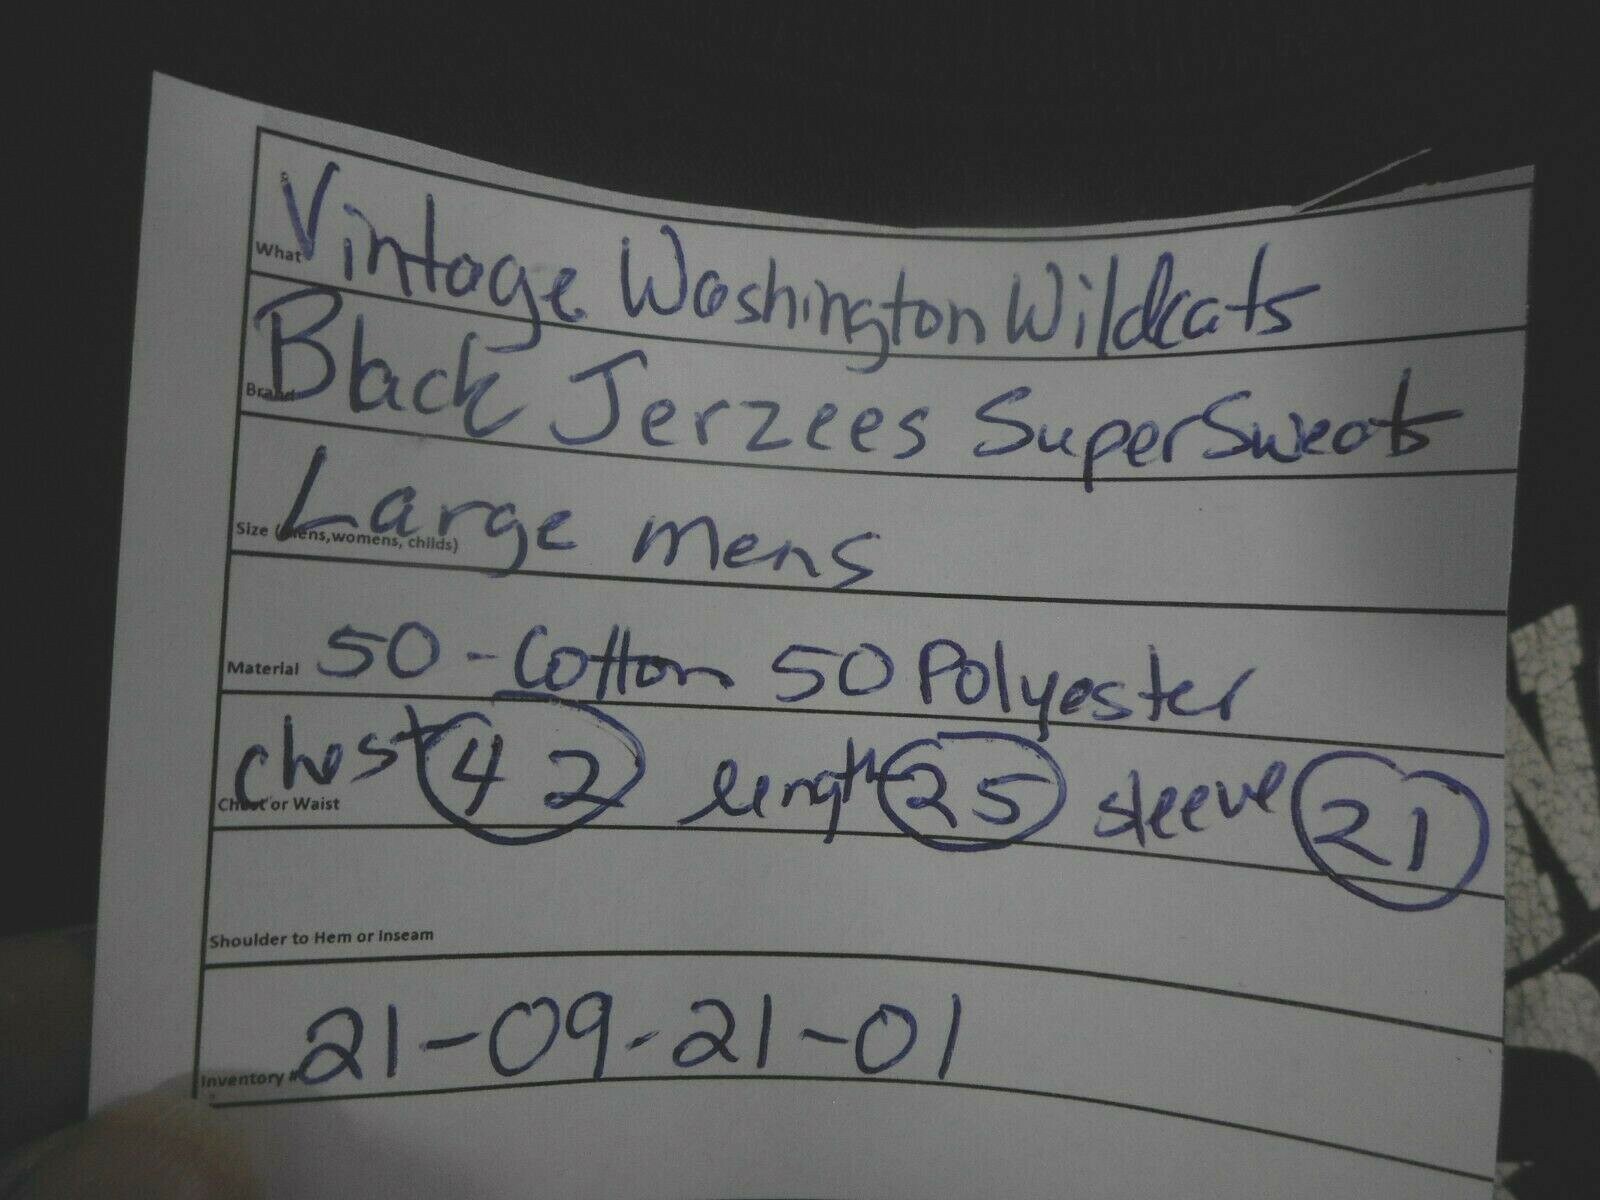 What Vintage Washington Wildcats
Brand Black Jerzees SuperSweats
Size (mens,womens, childs) Large mens
Material 50-Cotton 50 Polyester
Chest or Waist Chest 42 length 25 sleeve 21
Shoulder to Hem or Inseam
Inventory # 21-09-21-01